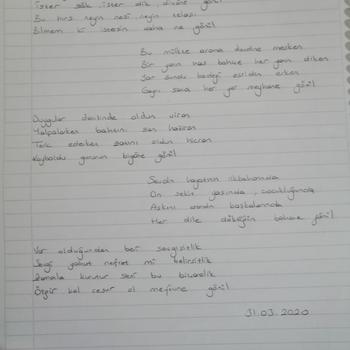 ister sök ister dik divane gönül
Bu hırs neyin nesi neyin telaşı
Bilmem ki istesin daha ne gönül
Bu mülkte arama daudne mesken
Bir yanı has bahçe her yanı diken
Şar sundu badeyi esridin erken
Gayrı sana her yer meyhane gönül
Duygular denilinde oldun viran
Yalpalarken bahtını san hazan
Terk ederken yakını oldun hicran
Kayboldu yarının bigane gönül
Sevdin hayatının ilkbaharında
On sekiz yaşında, çocukluğunda
Aşkını aradın başkalarında
Her dile döktüğün bahane gönül
Var olduğundan beri sevgisizlik
Sevgi yahut nefret mi belirsizlik
Zamanla kurutur seni bu bizarelik
Özgür kal cesur ol mefüne gönül
31.03.2020